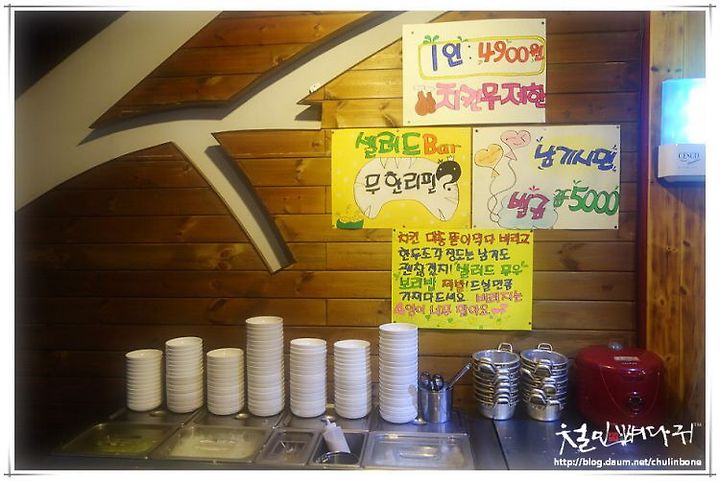 1인: 4900원
치킨무제한
샐러드Bar
무한리필?
남기시면
벌금 ₩5000
치킨 대충 뜯어먹다 버리고
한두조각 정도는 남겨도
괜찮겠지! 샐러드 무우
보리밥 제발! 드실만큼
가져다드세요 버려지는
양이 너무 많아요
CESCO
철민뼈다귀™
http://blog.daum.net/chulinbone